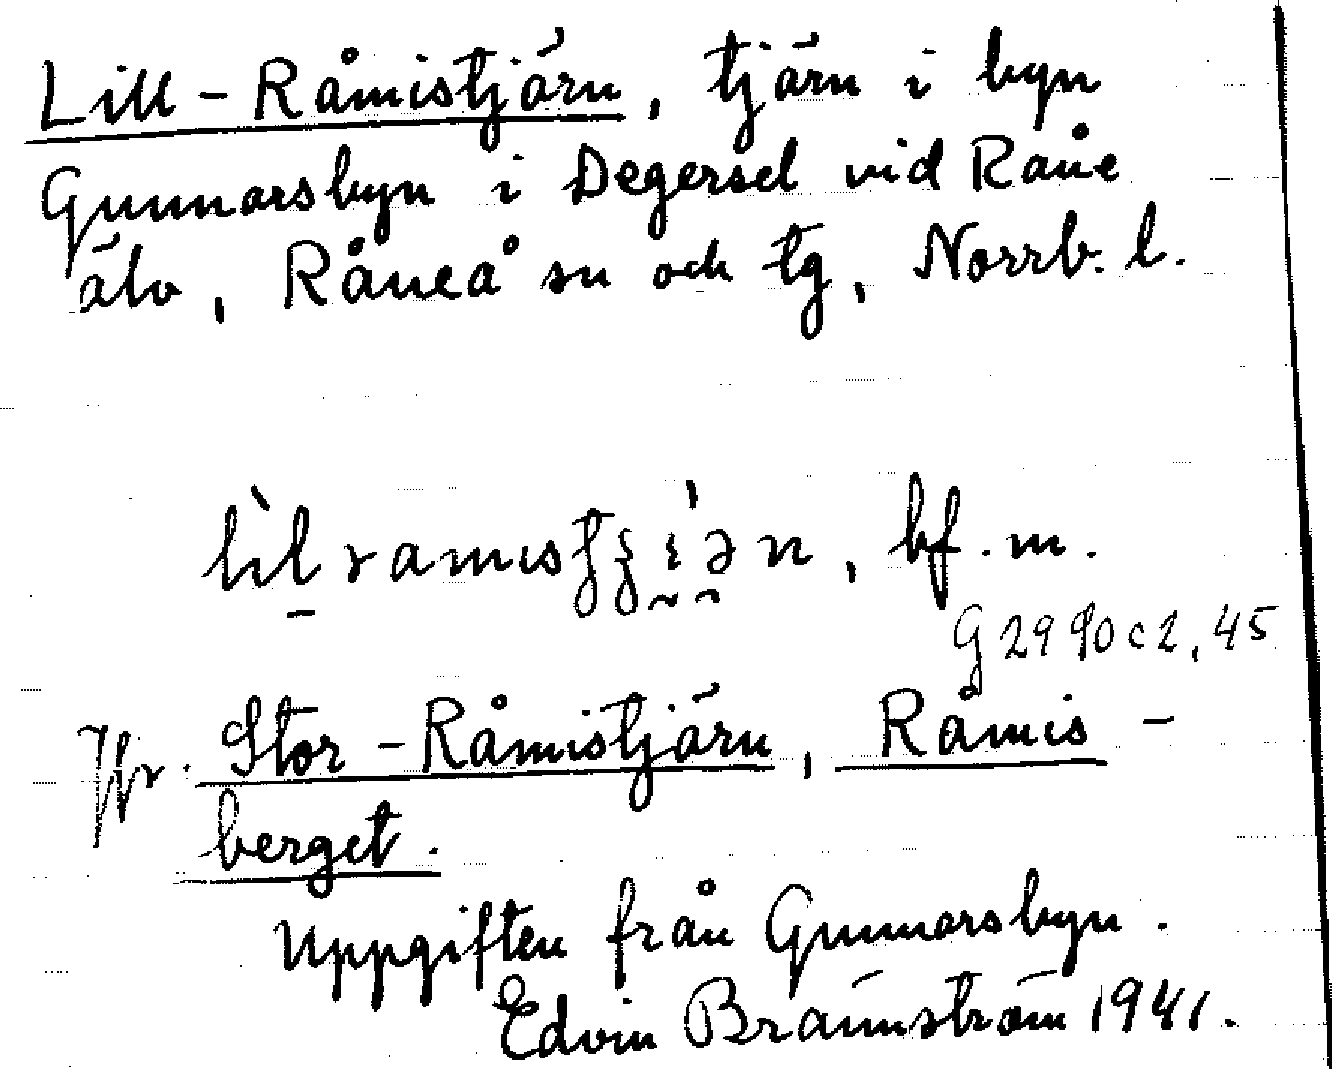 Lill-Råmistjärn, tjärn i byn
Gunnarsbyn i Degersel vid Råne
älv, Råneå sn och tg, Norrb. l.
bf. m.
G 2990 c 2, 45
Jfr. Stor-Råmistjärn, Råmis-
berget.
Uppgiften från Gunnarsbyn.
Edvin Brännström 1941.